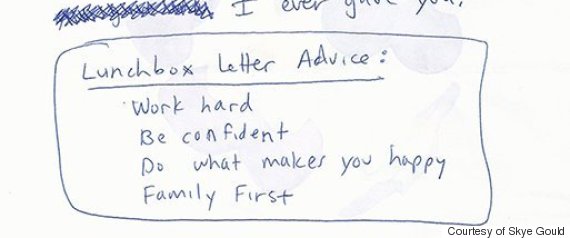 I ever gave you.
Lunchbox Letter Advice:
Work hard
Be confident
Do what makes you happy
Family First
Courtesy of Skye Gould